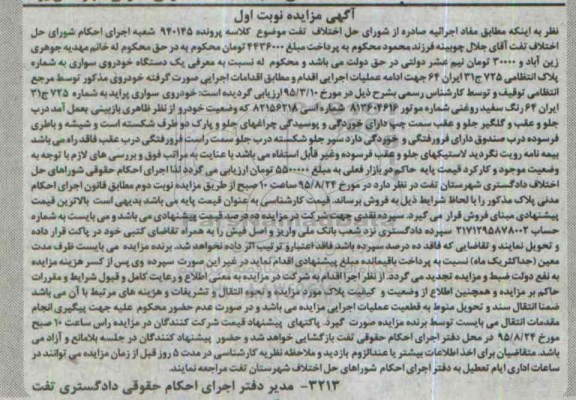 آگهی مزایده نوبت اول
نظر به اینکه مطابق مفاد اجرائیه صادره از شورای حل اختلاف تفت موضوع کلاسه پرونده ۹۴۰۱۴۵ شعبه اجرای احکام شورای حل
اختلاف تفت آقای جلال جوبینه فرزند محمود محکوم به پرداخت مبلغ ۴۴۳۶۰۰۰ تومان محکوم به در حق محکوم له خانم مهدیه جوهری
زین آباد و ۳۰۰۰۰ تومان نیم عشر دولتی در حق دولت می باشد و محکوم له نسبت به معرفی یک دستگاه خودروی سواری به شماره
پلاک انتظامی ۷۲۵ ج۳۱ ایران ۶۴ جهت ادامه عملیات اجرایی اقدام و مطابق اقدامات اجرایی صورت گرفته خودروی مذکور توسط مرجع
انتظامی توقیف و توسط کارشناس رسمی بشرح ذیل در مورخ ۹۵/۳/۱۰ ارزیابی گردیده است: خودروی سواری پراید به شماره ۷۲۵ ج۳۱
ایران ۶۴ رنگ سفید روغنی شماره موتور ۸۱۳۶۰۴۶۱۶ شماره اتاق ۸۲۱۵۶۲۱۸ که وضعیت خودرو از نظر ظاهری بازبینی بعمل آمد درب
جلو و عقب و گلگیر جلو و عقب سمت چپ دارای خوردگی و پوسیدگی چراغهای جلو و پارک دو طرف شکسته است و شیشه و باطری
فرسوده درب صندوق دارای فرورفتگی و خوردگی دارد سپر جلو شکسته درب جلو سمت راست فرورفتگی درب عقب فاقد راه می باشد
بیمه نامه رویت نگردید لاستیکهای جلو و عقب فرسوده وغیر قابل استفاده می باشد با عنایت به مراتب فوق و بررسی های لازم با توجه به
وضعیت موجود و کارکرد قیمت پایه حاکم در بازار فعلی به مبلغ ۵۵۰۰۰۰۰ تومان ارزیابی می گردد لذا اجرای احکام حقوقی شوراهای حل
اختلاف دادگستری شهرستان تفت در نظر دارد در مورخ ۹۵/۸/۲۴ ساعت ۱۰ صبح از طریق مزایده نوبت دوم مطابق قانون اجرای احکام
مدنی پلاک مذکور را با لحاظ شرایط ذیل به فروش برساند. قیمت کارشناسی به عنوان قیمت پایه می باشد بدیهی است بالاترین قیمت
پیشنهادی مبنای فروش قرار می گیرد. سپرده نقدی جهت شرکت در مزایده ده درصد قیمت پیشنهادی می باشد و می بایست به شماره
حساب ۲۱۷۱۲۹۵۸۷۸۰۰۲ سپرده دادگستری نزد شعب بانک ملی واریز و اصل فیش را به همراه تقاضای کتبی خود در پاکت قرار داده
و تحویل نمایند و تقاضایی که فاقد ده درصد سپرده باشد فاقد اعتبار و ترتیب اثر داده نخواهد شد. برنده مزایده می بایست ظرف مدت
معین (حداکثر یک ماه) نسبت به پرداخت باقیمانده مبلغ پیشنهادی اقدام نماید در غیر این صورت سپرده وی پس از کسر هزینه مزایده
به نفع دولت ضبط و مزایده تجدید می گردد. از نظر اجرا اقدام به شرکت در مزایده به معنی اطلاع و رعایت کامل و قبول شرایط و مقررات
حاکم بر مزایده و همچنین اطلاع از وضعیت و کیفیت پلاک مورد مزایده و نحوه انتقال و تشریفات و هزینه های مرتبط با آن می باشد
ضمنا انتقال سند و تحویل منوط به قطعیت عملیات اجرایی مزایده می باشد و در صورت عدم حضور محکوم علیه جهت پیگیری انجام
مقدمات انتقال می بایست توسط برنده مزایده صورت گیرد. پاکتهای پیشنهاد قیمت شرکت کنندگان در مزایده راس ساعت ۱۰ صبح
مورخ ۹۵/۸/۲۴ در محل دفتر اجرای احکام حقوقی تفت بازگشایی خواهد شد و حضور پیشنهاد کنندگان در جلسه بلامانع و آزاد می
باشد. متقاضیان برای اخذ اطلاعات بیشتر یا عندالزوم بازدید و ملاحظه نظریه کارشناسی در مدت ۵ روز قبل از زمان مزایده می توانند در
ساعات اداری ایام تعطیل به دفتر اجرای احکام شوراهای حل اختلاف شهرستان تفت مراجعه نمایند.
۳۲۱۳- مدیر دفتر اجرای احکام حقوقی دادگستری تفت